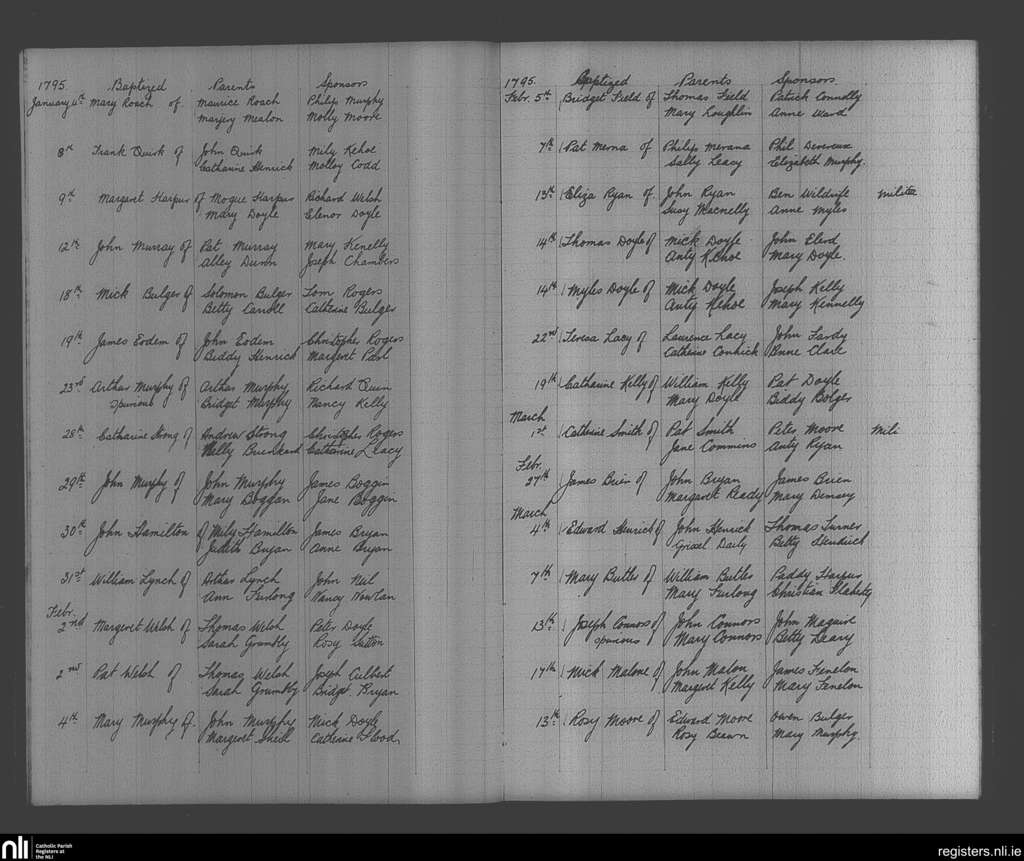 1795. Baptized Parents Sponsors
January 6th Mary Roach of Maurice Roach Philip Murphy
Marjery Mealon Molly Moore
8th Frank Quirk of John Quirk Mily Kehoe
Catharine Henrick Molloy Codd
9th Margaret Harpur of Mogue Harpur Richard Welsh
Mary Doyle Elenor Doyle
12th John Murray of Pat Murray Mary Kenelly
Alley Dunn Joseph Chambers
18th Mick Bulger of Solomon Bulger Tom Rogers
Betty Carroll Catherine Bulger
19th James Eodem of John Eodem Christopher Rogers
Biddy Henrick Margaret
23rd Arthur Murphy of Arthur Murphy Richard Quin
Spurious Bridget Murphy Nancy Kelly
28th Catharine Strong of Andrew Strong Christopher Rogers
Nelly Catharine Leacy
29th John Murphy of John Murphy James Boggin
Mary Boggan Jane Boggin
30th John Hamilton of Mily Hamilton James Bryan
Judith Bryan Anne Bryan
31st William Lynch of Arthur Lynch John Neil
Ann Furlong Nancy Nowlan
Febr.
2nd Margaret Welsh of Thomas Welsh Peter Doyle
Sarah Grumbly Rosy Sutton
2nd Pat Welsh of Thomas Welsh Joseph Culbert
Sarah Grumbly Bridgt. Bryan
4th Mary Murphy of John Murphy Mick Doyle
Margaret Sheill Catherine Flood
1795. Baptized Parents Sponsors
Febr. 5th Bridget Field of Thomas Field Patrick Connolly
Mary Loughlin Anne Ward
7th Pat Merna of Philip Merana Phil Devereux
Sally Leacy Elizabeth Murphy.
13th Eliza Ryan of John Ryan Ben Wildrife militia
Susy Macnelly Anne Myles
14th Thomas Doyle of Mick Doyle John
Anty Kehoe Mary Doyle.
14th Myles Doyle of Mick Doyle Joseph Kelly
Anty Kehoe Mary Kennelly
22nd Teresa Lacy of Laurence Lacy John Fardy
Catherine Conkick Anne Clare
19th Catharine Kelly of William Kelly Pat Doyle
Mary Doyle Biddy Bolger
March
1st Catherine Smith of Pat Smith Peter Moore Mili
Jane Commins Anty Ryan
Febr.
27th James Brien of John Bryan James Brien
Margaret Ready Mary Dempsy
March
4th Edward Henrick of John Henrick Thomas Turner
Grizel Daily Betty Hendrick
7th Mary Butler of William Butler Paddy Harpur
Mary Furlong Christian Flaherty
13th Joseph Connors of John Connors John Maguire
Spurious Mary Connors Betty Leary
17th Mick Malone of John Malon James Fenelon
Margaret Kelly Mary Fenelon
13th Rosy Moore of Edward Moore Owen Bulger
Rosy Brawn Mary Murphy.
nli Catholic Parish
Registers at
the NLI
registers.nli.ie